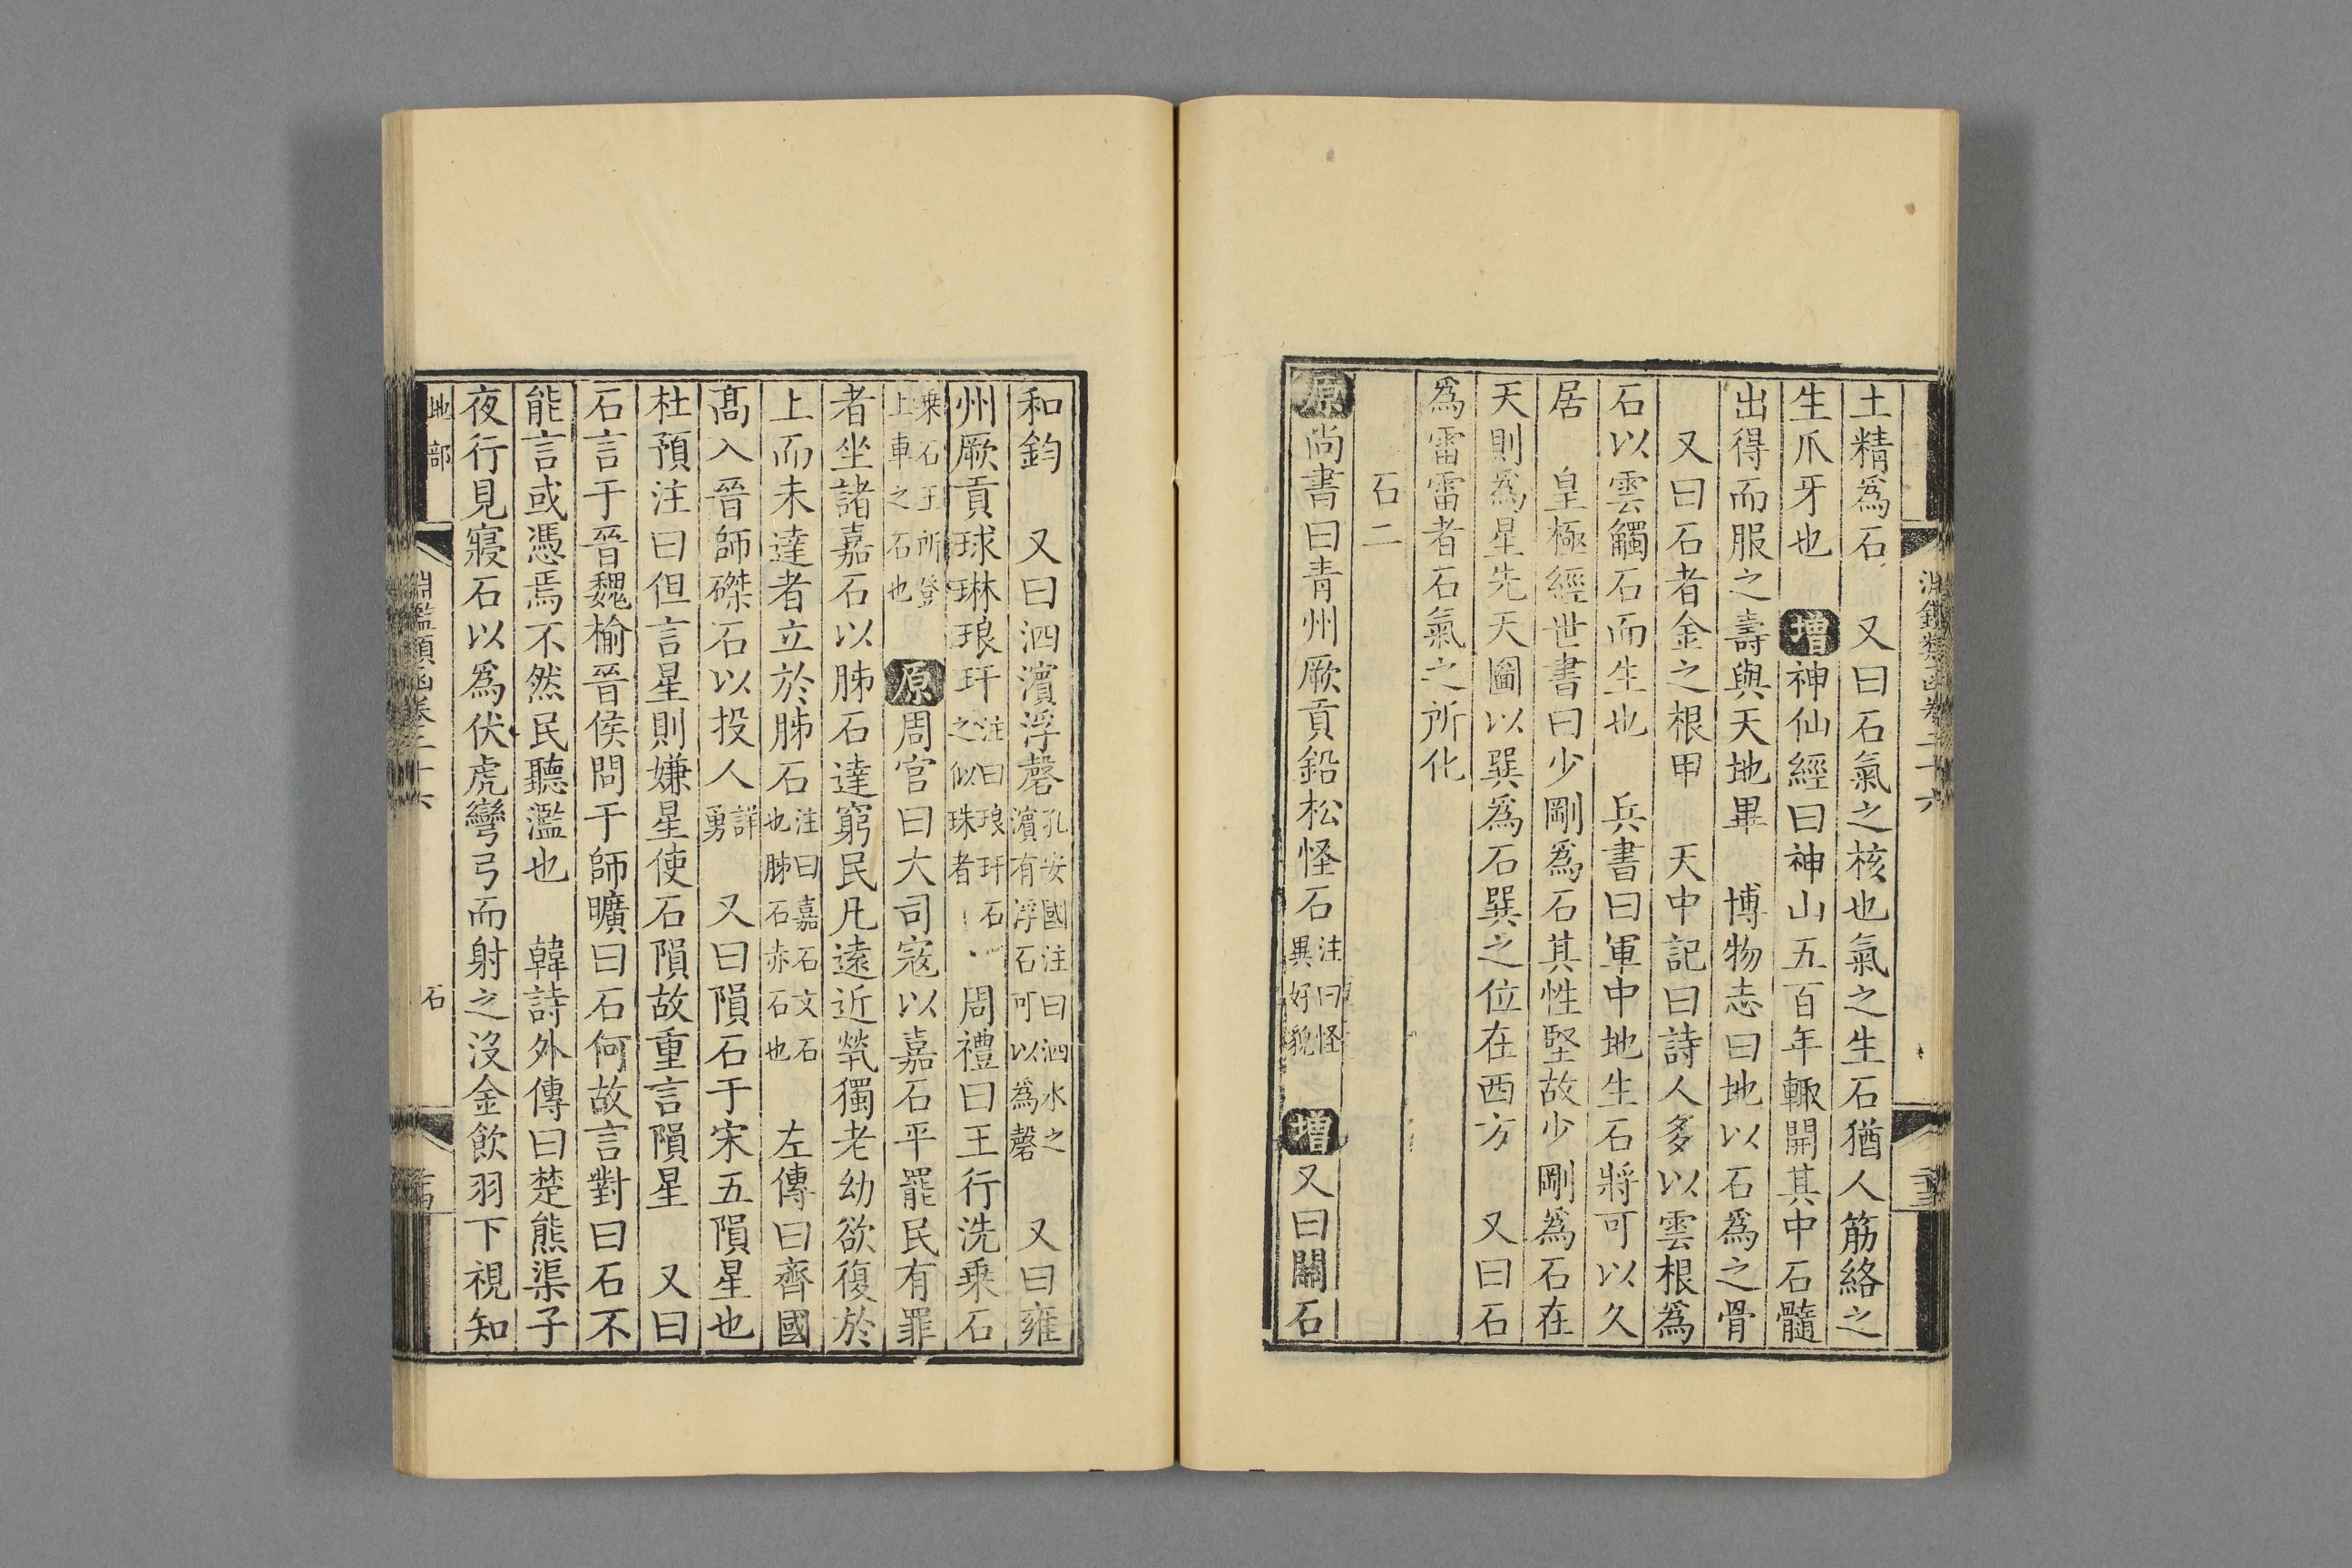 淵鑑類函卷二十六
土精爲石 又曰石氣之核也氣之生石猶人筋絡之
生爪牙也 增神仙經曰神山五百年輙開其中石髓
出得而服之壽與天地畢 博物志曰地以石爲之骨
又曰石者金之根甲 天中記曰詩人多以雲根爲
石以雲觸石而生也 兵書曰軍中地生石將可以久
居 皇極經世書曰少剛爲石其性堅故少剛爲石在
天則爲星先天圖以巽爲石巽之位在西方 又曰石
爲雷雷者石氣之所化
石二
原尚書曰青州厥貢鉛松怪石注曰怪異好貌 增又曰關石
和鈞 又曰泗濱浮磬孔安國注曰泗水之濱有浮石可以為磬 又曰雍
州厥貢球琳琅玕注曰琅玕石之似珠者 周禮曰王行洗乗石
乗石王所登上車之石也 原周官曰大司宼以嘉石平罷民有罪
者坐諸嘉石以肺石達窮民凡遠近煢獨老幼欲復於
上而未達者立於肺石注曰嘉石文石也肺石赤石也 左傳曰齊國
髙入晉師磔石以投人詳勇 又曰隕石于宋五隕星也
杜預注曰但言星則嫌星使石隕故重言隕星 又曰
石言于晉魏榆晉侯問于師曠曰石何故言對曰石不
能言或憑焉不然民聽濫也 韓詩外傳曰楚熊渠子
夜行見寢石以爲伏虎彎弓而射之沒金飲羽下視知
地部 淵鑑類函卷二十六 石